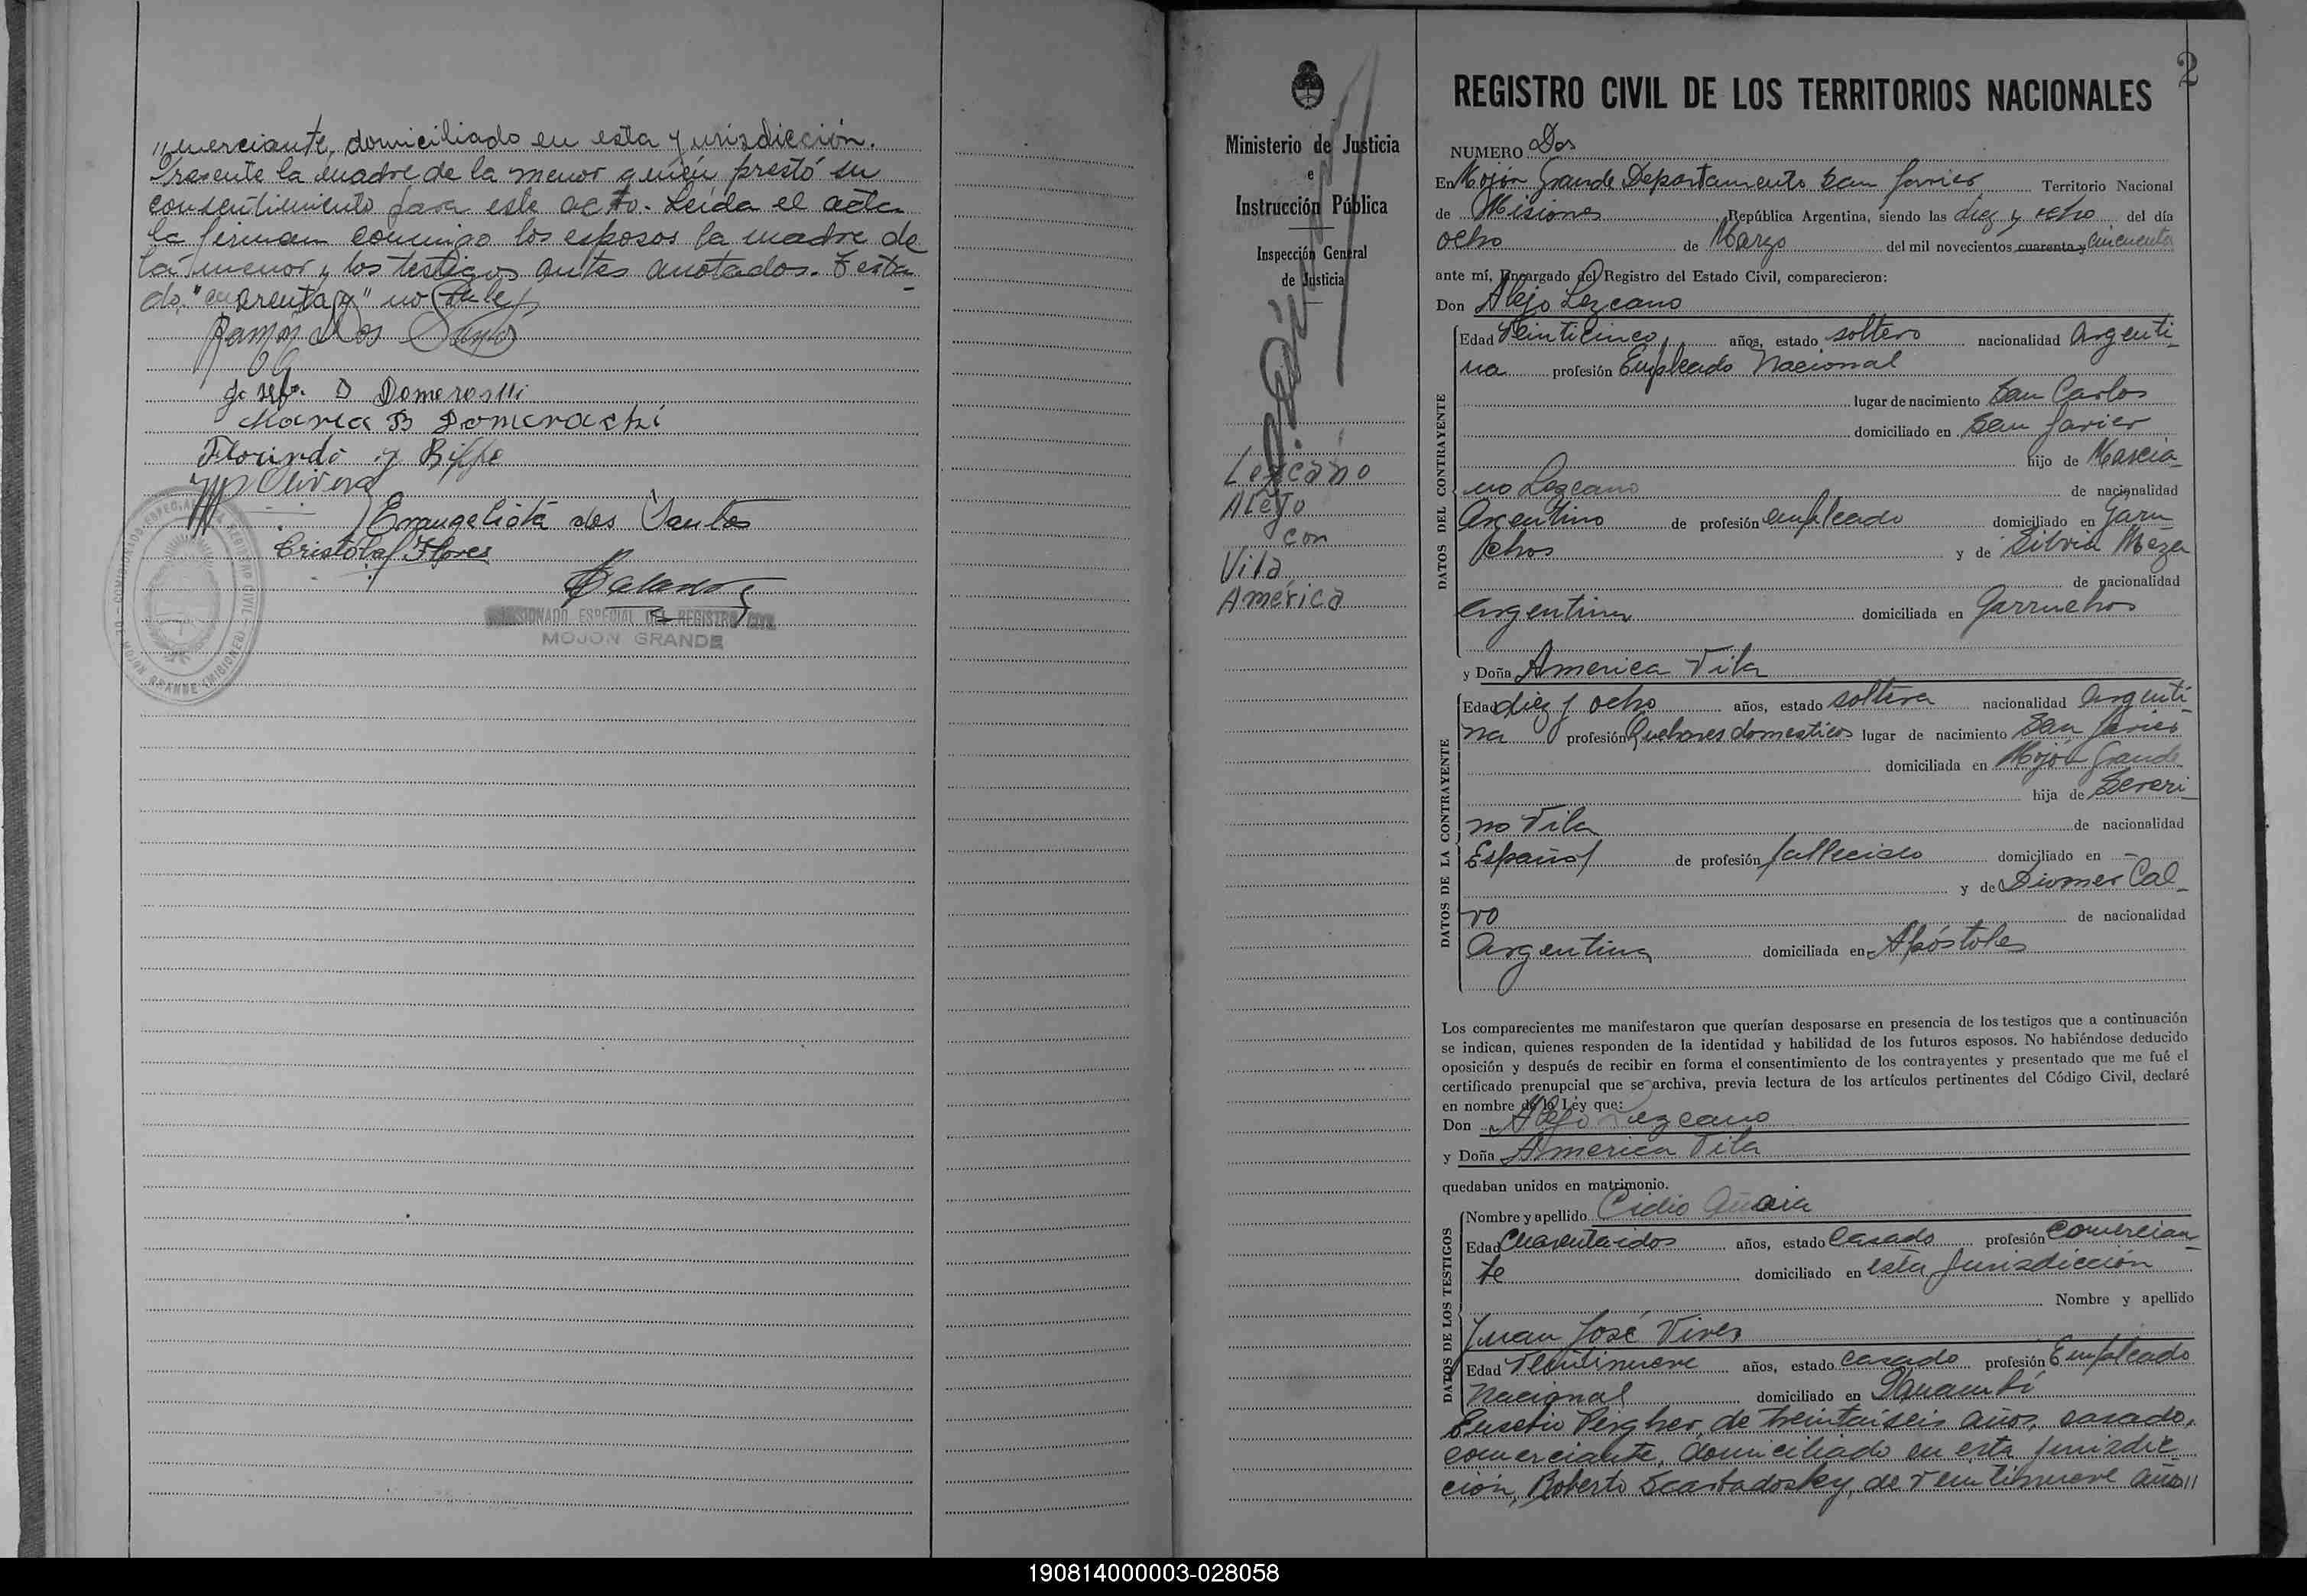 "merciante, domiciliado en esta Jurisdicción.
Presente la madre de la menor quien prestó su
consentimiento para este acto. Leída el acta
la firman conmigo los esposos la madre de
la menor y los testigos antes anotados. Testa-
do: "cuarenta y" no vale
Ramón Dos
Josefa B Domeraski
Maria B Domerachi
Florindo
Olivera
Evangelista dos Santos
Cristobal Flores
COMISIONADO ESPECIAL DEL REGISTRO CIVIL
MOJON GRANDE
Ministerio de Justicia
e
Instrucción Pública
Inspección General
de Justicia
Lezcano
Alejo
con
Vila
América
2
REGISTRO CIVIL DE LOS TERRITORIOS NACIONALES
NUMERO Dos
En Mojón Grande Departamento San Javier Territorio Nacional
de Misiones República Argentina, siendo las diez y ocho del día
ocho de Marzo del mil novecientos cuarenta y cincuenta
ante mí, Encargado del Registro del Estado Civil, comparecieron:
Don Alejo Lezcano
DATOS DEL CONTRAYENTE
Edad Veinticinco años, estado soltero nacionalidad Argenti-
na profesión Empleado Nacional
lugar de nacimiento San Carlos
domiciliado en San Javier
hijo de Marcia-
no Lezcano de nacionalidad
Argentino de profesión empleado domiciliado en Garru
chos y de Silvia Meza
de nacionalidad
argentina domiciliada en Garruchos
y Doña America Vila
DATOS DE LA CONTRAYENTE
Edad diez y ocho años, estado soltera nacionalidad Argenti-
na profesión Quehaceres domesticos lugar de nacimiento San Javier
domiciliada en Mojón Grande
hija de Severi-
no Vila de nacionalidad
Español de profesión fallecido domiciliado en -
y de Diomer Cal-
vo de nacionalidad
argentina domiciliada en Apóstoles
Los comparecientes me manifestaron que querían desposarse en presencia de los testigos que a continuación
se indican, quienes responden de la identidad y habilidad de los futuros esposos. No habiéndose deducido
oposición y después de recibir en forma el consentimiento de los contrayentes y presentado que me fué el
certificado prenupcial que se archiva, previa lectura de los artículos pertinentes del Código Civil, declaré
en nombre de la Ley que:
Don Alejo Lezcano
y Doña America Vila
quedaban unidos en matrimonio.
DATOS DE LOS TESTIGOS
Nombre y apellido Cidio
Edad Cuarentaidos años, estado Casado profesión Comercian-
te domiciliado en esta Jurisdicción
Nombre y apellido
Juan José Vives
Edad Veintinueve años, estado casado profesión Empleado
Nacional domiciliado en Panambí
Eusebio Pergher, de treintaiseis años, casado,
comerciante, domiciliado en esta jurisdic
ción, Roberto Scartadosky, de veintinueve años"
190814000003-028058